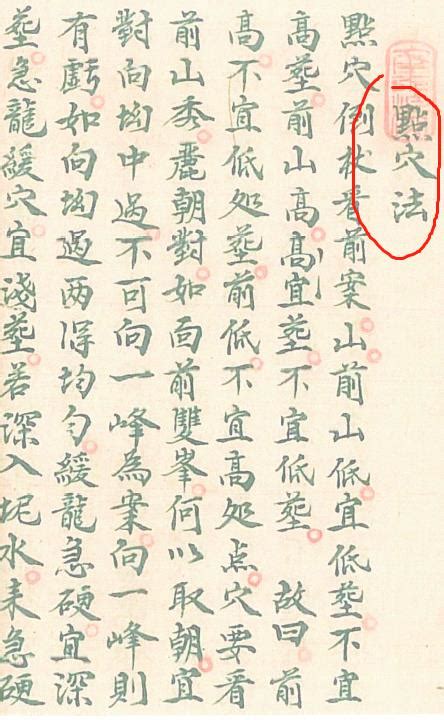 點穴法
點穴倒杖看前案山前山低宜低塟不宜
高塟前山高高宜塟不宜低塟故曰前
高不宜低処塟前低不宜高処点穴要看
前山秀麗朝對如面前雙峯何以取朝宜
對向坳中過不可向一峰為案向一峰則
有虧如向坳過两淂均匀緩龍急硬宜深
塟急龍緩穴宜淺塟若深入坭水耒急硬